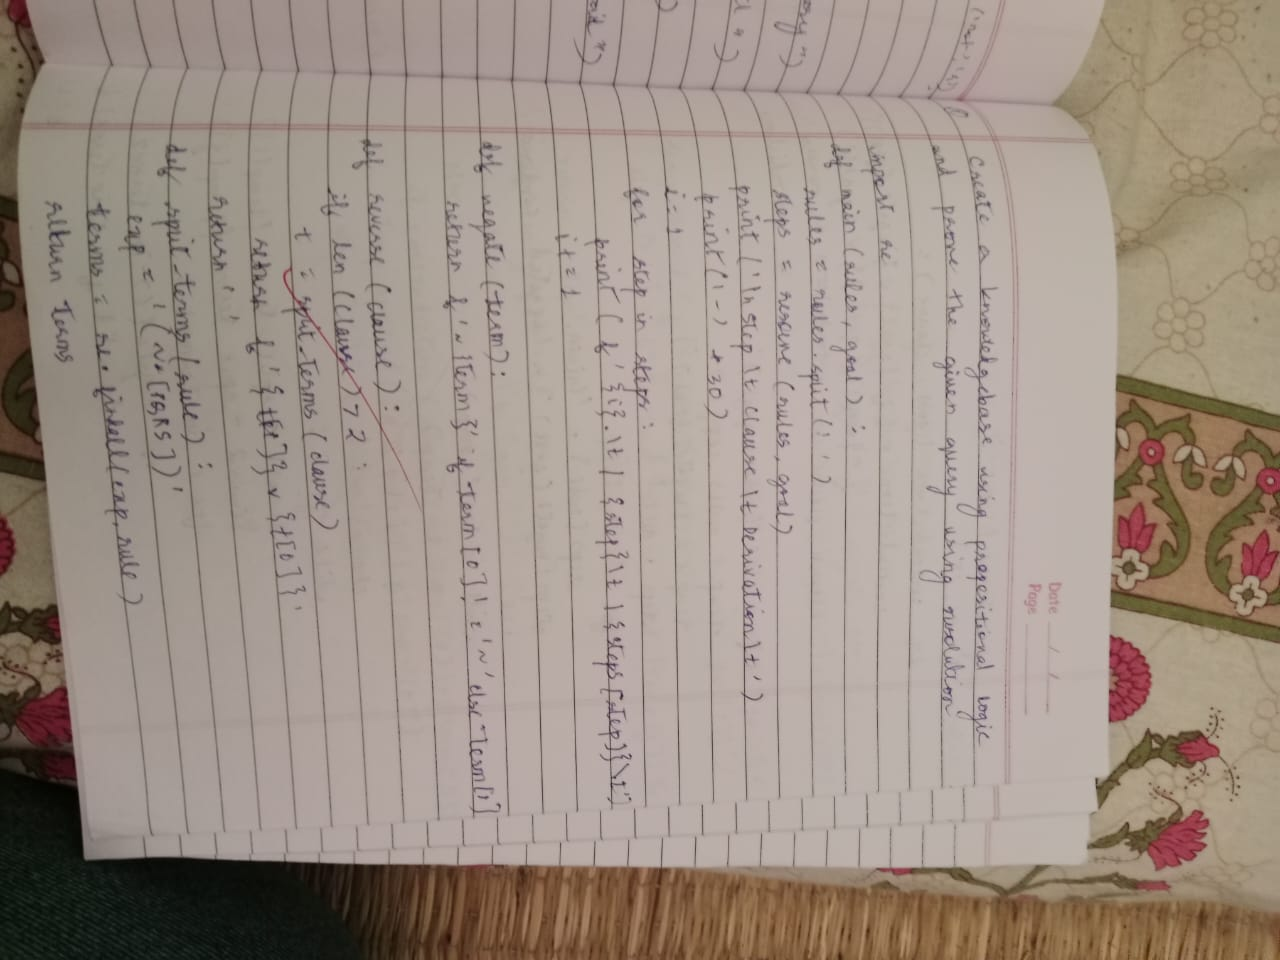 Date
Page
Create a knowledgebase using prepositional logic
and prove the given query using resolution
import re
def main (rules, goal) :
rules = rules.split(' ')
steps = resolve (rules, goal)
print ('\n step \t clause \t Derivation \t')
print ('-') * 30)
i = 1
for step in steps :
print ( f' {i}. \t | {step} \t | {steps[step]} \t')
i+ = 1
def negate (term) :
return f '~ {Term}' if term [0] ! = '~' else term[1]
def reverse (clause) :
if len (clause) > 2 :
t = split_terms (clause)
return f ' {t[1]} v {t[0]} '
return ' '
def split_terms (rule) :
exp = ' (~* [PQRS]) '
terms = re. findall (exp, rule)
return terms